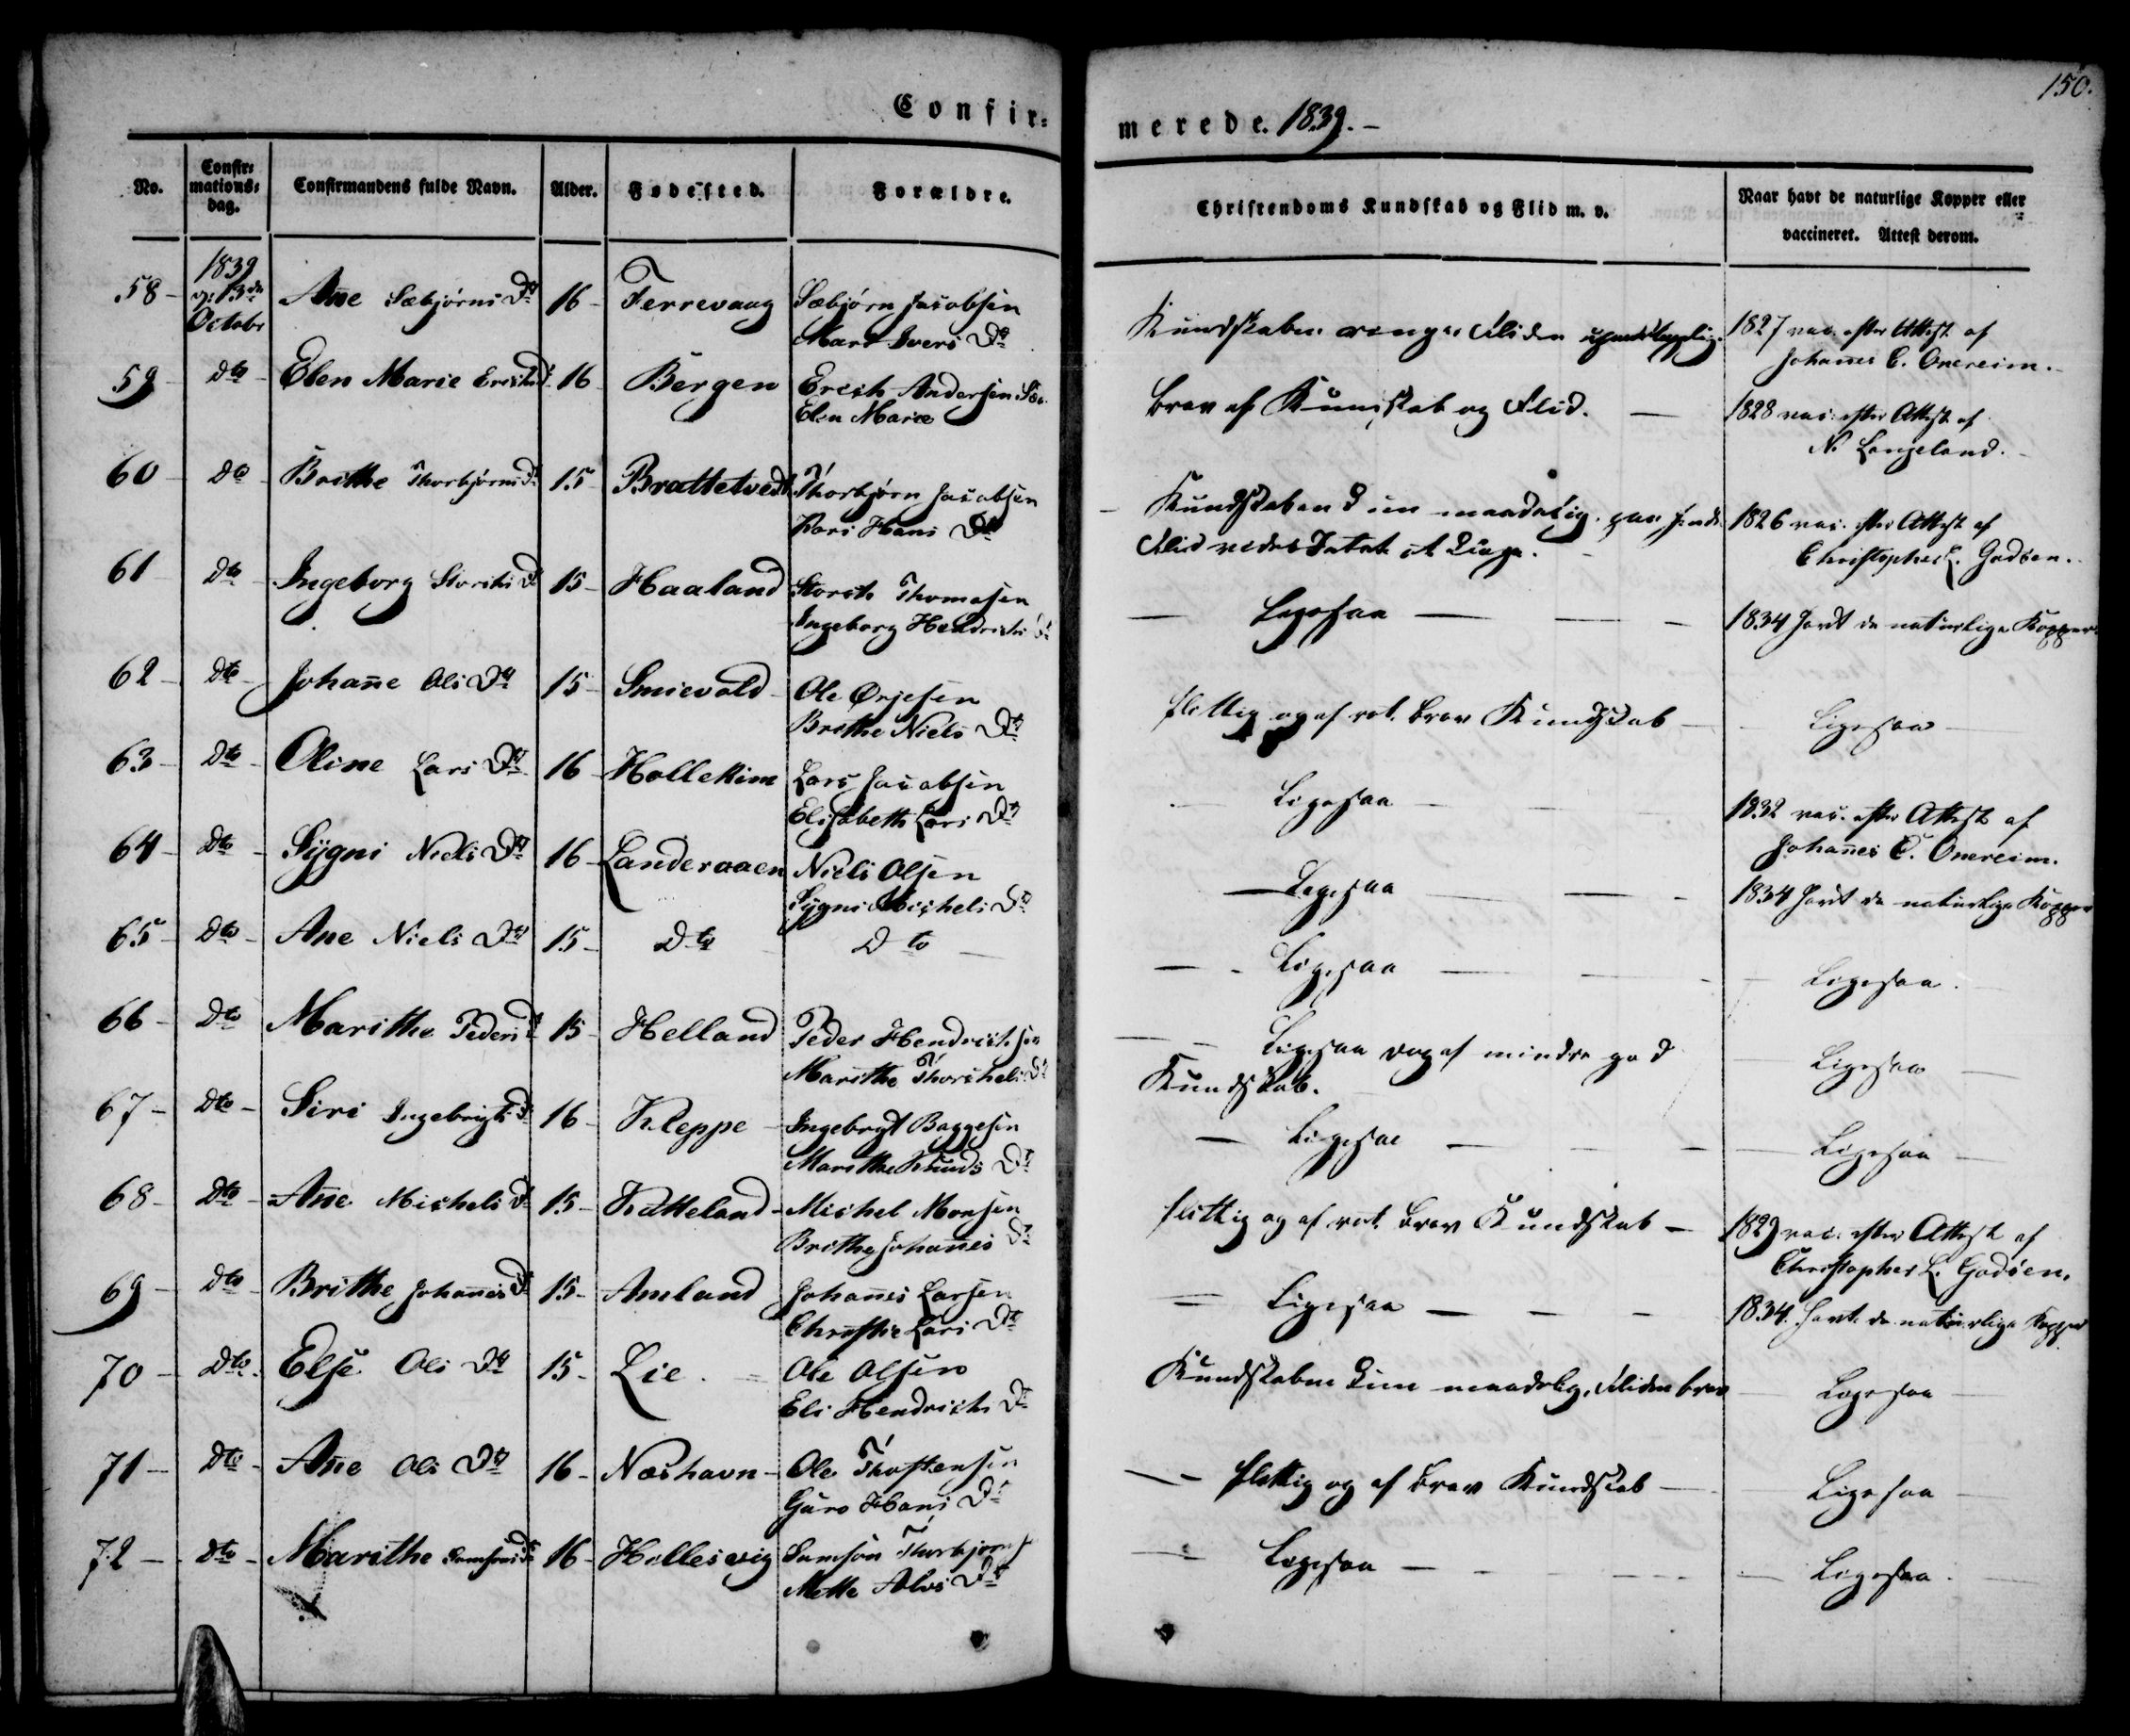 150.
Confir-
merede. 1839. -
No.
Confir-
mations-
dag.
Confirmandens fulde Navn.
Alder.
Fødested.
Forældre.
Christendoms Kundskab og Flid m. v.
Naar havt de naturlige Kopper eller
vaccineret. Attest derom.
1839
58 - d: 13de Ane Sæbjørns Dr 16 - Ferrevaag Sæbjørn Jacobsen
Octobr Mari Ivers Dr
Kundskaben ringe, Fliden 1827 vac. efter Attest af
Johannes C. Onereim.
59 dto Elen Marie Erichs D 16 Bergen Erich Andersen
Elen Marie
brav af Kundskab og Flid. 1828 vac. efter Attest af
N. Langeland.
60 - dto Brithe Thorbjørns D 15 Brattetvedt Thorbjørn Jacobsen
Kari Hans Dr
Kundskaben kun maadelig 1826 vac. efter Attest af
Flid Christopher L. Godøen.
61 Dto - Ingeborg Storchs D 15 - Haaland Storch Thomasen
Ingeborg Hendrichs Dr
Ligesaa 1834 havt de naturlige Kopper
62 - Dto - Johanne Ols Dr 15 - Smievold - Ole Ørjesen
Brithe Niels Dr
flittig og af ret brav Kundskab - Ligesaa
63 - Dto - Oline Lars Dr 16 - Hollekim Lars Jacobsen
Elisabeth Lars Dr
Ligesaa 1832 vac. efter Attest af
Johannes C. Onereim.
64 - Dto - Sygni Niels Dr 16 - Landeraaen Niels Olsen
Sygni Michels Dr
Ligesaa 1834 havt de naturlige Kopper
65 - Dto - Ane Niels Dr 15 - Dto Dto
Ligesaa Ligesaa.
66 - Dto Marithe Peders D 15 - Helland Peder Hendrichsen
Marithe Thorchels Dr
Ligesaa dog af mindre god Ligesaa
Kundskab.
67 - Dto - Siri Ingebrigts D 16 - Kleppe - Ingebrigt Baggesen
Marithe Knuds Dr
Ligesaa Ligesaa
68 - Dto - Ane Michels D 15 - Katteland - Michel Monsen
Brithe Johannes Dr
flittig og af ret brav Kundskab - 1829 vac. efter Attest af
Christopher L. Godøen.
69 - Dto Brithe Johannes D 15 - Amland Johannes Larsen
Christie Lars Dr
Ligesaa 1834. havt de naturlige Kopper
70 - Dto. Else Ols Dr 15 - Lie. Ole Olsen
Eli Hendrichs Dr
Kundskaben kun maadelig, Fliden brav Ligesaa
71 - Dto - Ane Ols Dr 16 - Næshavn - Ole Thostensen
Guro Hans Dr
flittig og af brav Kundskab - Ligesaa
72 - Dto - Marithe Samsons D 16 - Hollesvig Samson Thorbjørns
Mette Alvs Dr
Ligesaa - Ligesaa.